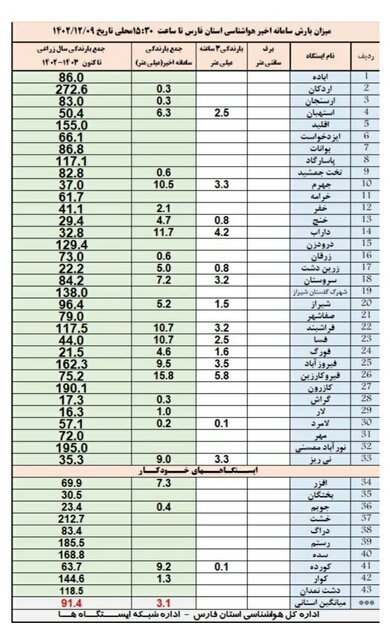 میزان بارش سامانه اخیر هواشناسی استان فارس تا ساعت ۱۵:۳۰ محلی تاریخ ۱۴۰۲/۱۲/۰۹
ردیف نام ایستگاه برف سانتی متر بارندگی ۳ ساعته میلی متر جمع بارندگی سامانه اخیر(میلی متر) جمع بارندگی سال زراعی تاکنون ۱۴۰۳-۱۴۰۲
1 آباده 86.0
2 اردکان 0.3 272.6
3 ارسنجان 0.3 83.0
4 استهبان 2.5 6.3 50.4
5 اقلید 155.0
6 ایزدخواست 66.1
7 بوانات 86.8
8 پاسارگاد 117.1
9 تخت جمشید 0.6 82.8
10 جهرم 3.3 10.5 37.0
11 خرامه 61.7
12 خفر 2.1 41.1
13 خنج 0.8 4.7 29.4
14 داراب 4.2 11.7 32.8
15 درودزن 129.4
16 زرقان 0.6 73.0
17 زرین دشت 0.8 5.0 22.2
18 سروستان 3.2 7.2 84.2
19 شهرک گلستان شیراز 138.0
20 شیراز 1.5 5.2 96.4
21 صفاشهر 79.0
22 فراشبند 3.2 10.7 117.5
23 فسا 2.5 10.7 44.0
24 فورگ 1.6 4.6 21.5
25 فیروزآباد 3.5 9.5 162.3
26 قیروکارزین 5.8 15.8 75.2
27 کازرون 190.1
28 گراش 0.3 17.3
29 لار 1.0 16.3
30 لامرد 0.1 0.2 57.1
31 مهر 72.0
32 نورآباد ممسنی 195.0
33 نی ریز 3.3 9.0 35.3
ایستگاههای خودکار
34 افزر 7.3 69.9
35 بختگان 30.5
36 جویم 0.4 23.4
37 خشت 212.7
38 دراگ 83.4
39 رستم 185.5
40 سده 168.8
41 کورده 0.1 9.2 63.7
42 کوار 1.3 144.6
43 دشت نمدان 118.5
*** میانگین استانی 3.1 91.4
اداره کل هواشناسی استان فارس - اداره شبکه ایستگاه ها